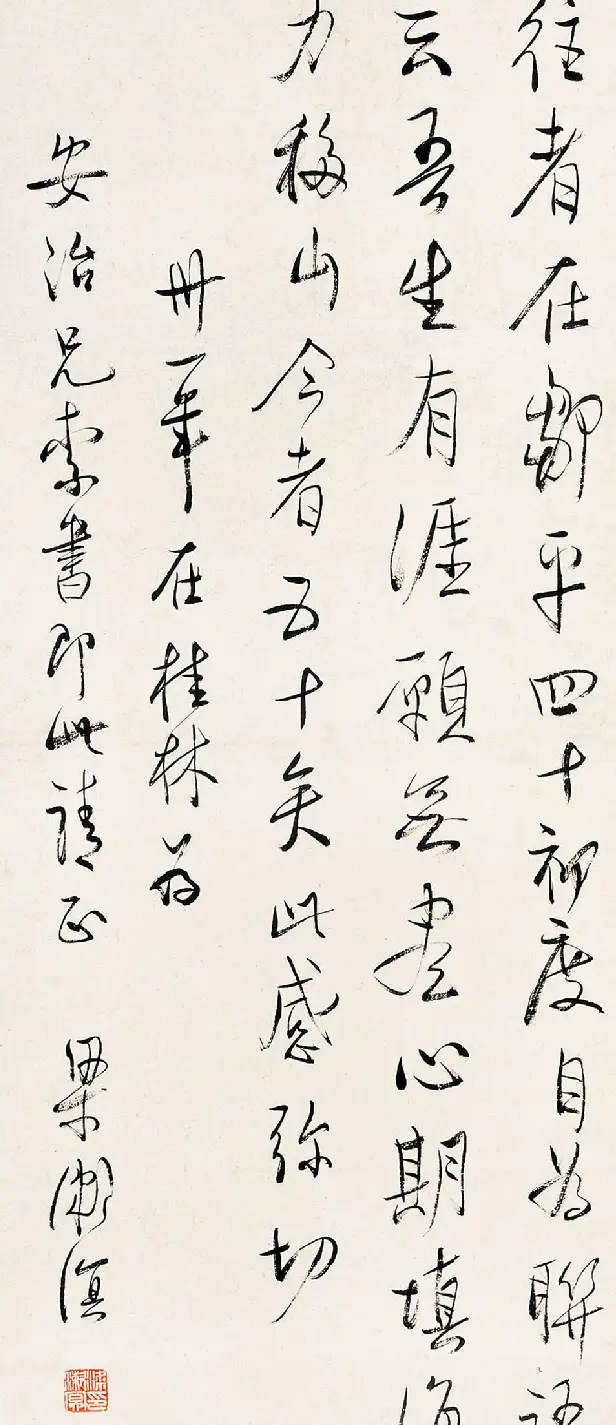 往者在鄒平四十初度自為聯語
云吾生有涯願無盡心期填海
力移山今者五十矣此感弥切
卅一年在桂林为
安治兄索書即此請正 梁漱溟